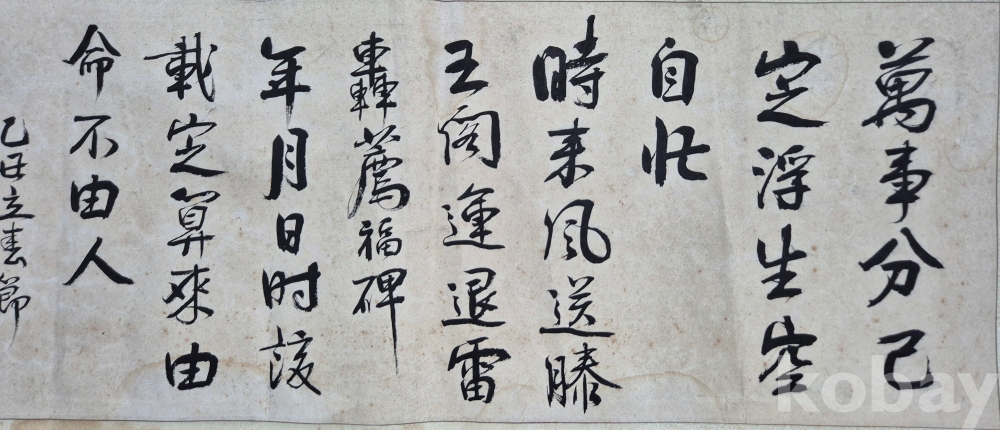 萬事分已
定浮生空
自忙
時来風送滕
王閣運退雷
轟薦福碑
年月日时該
載定算來由
命不由人
乙丑立春節
kobay